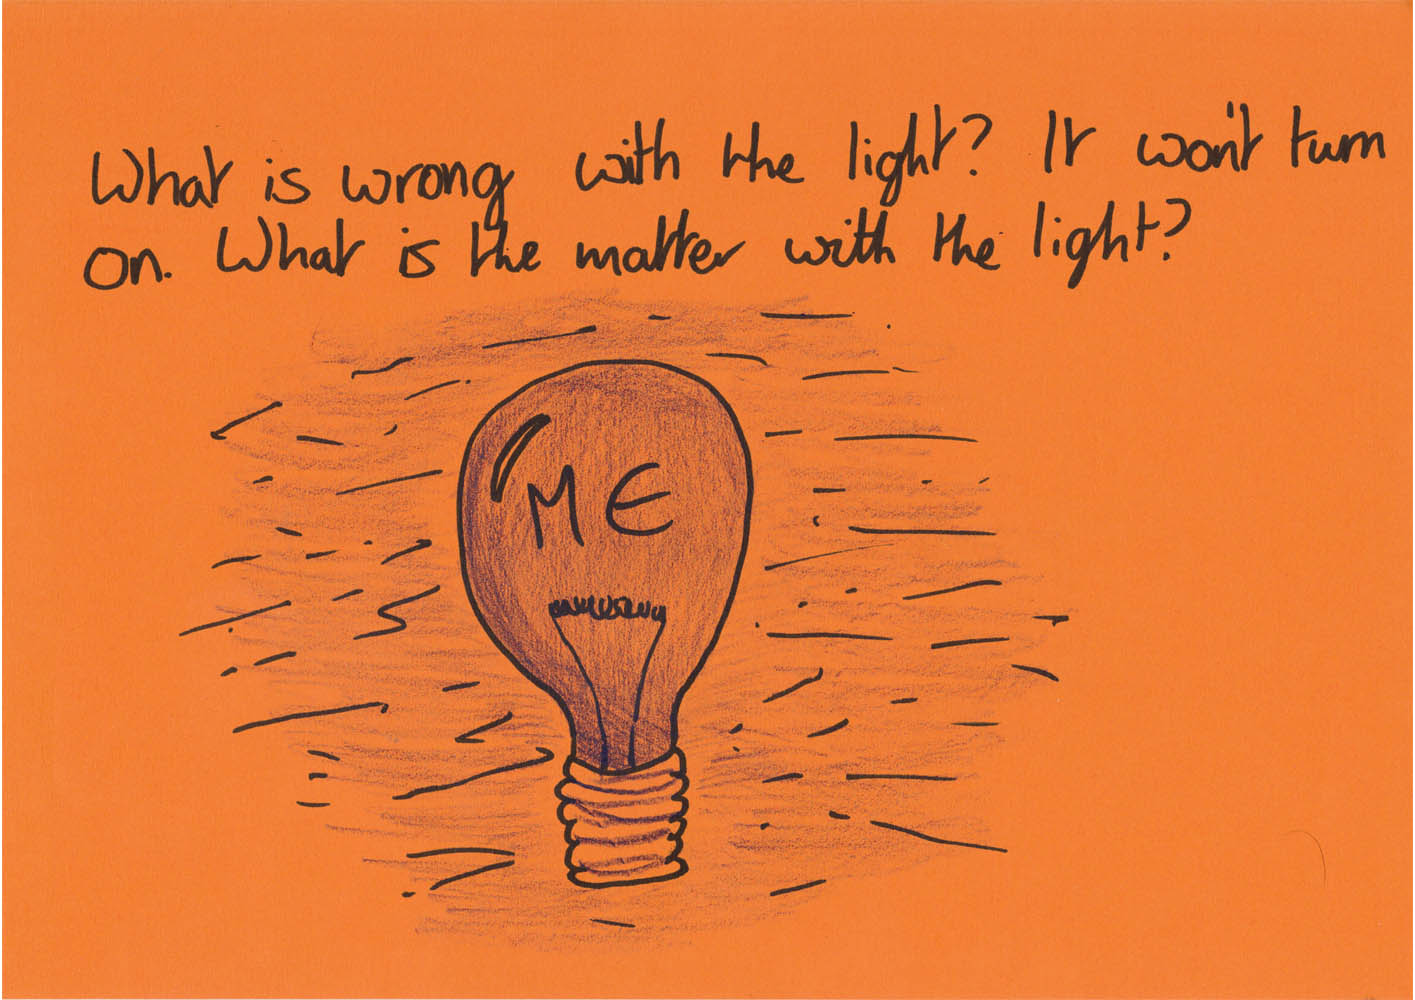 What is wrong with the light? It won't turn
on. What is the matter with the light?
ME